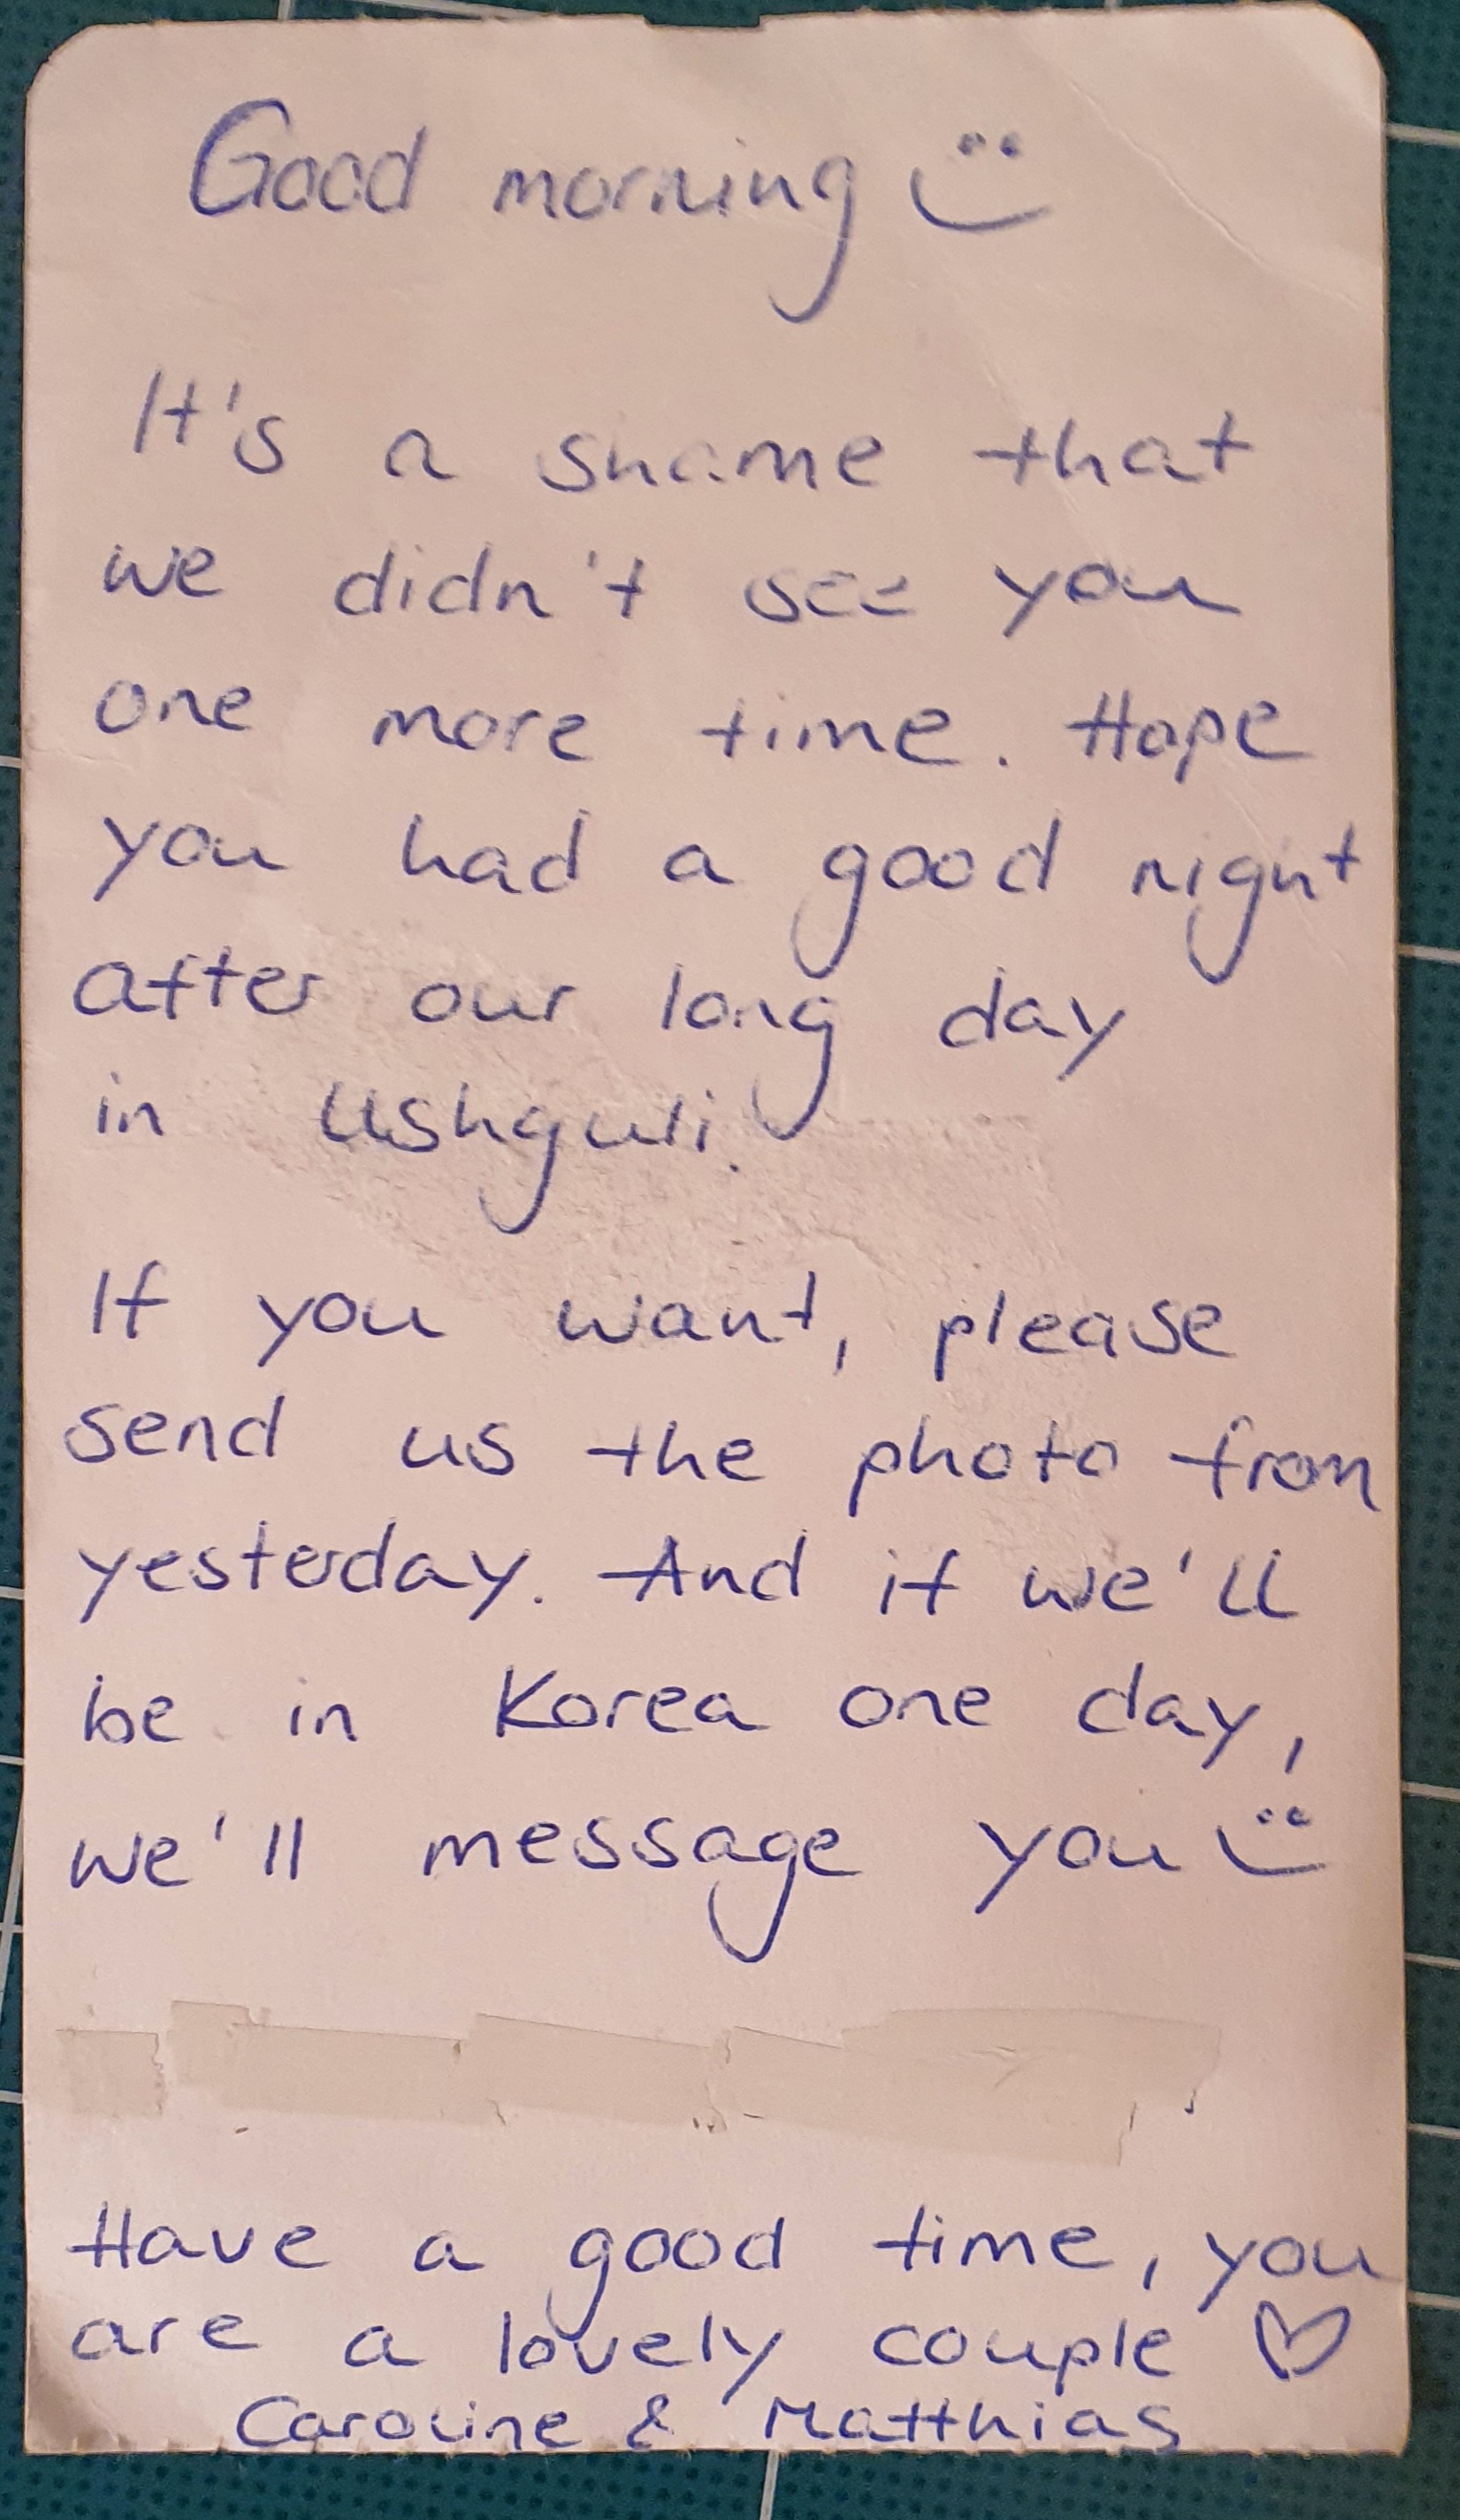 Good morning :)
It's a shame that
we didn't see you
one more time. Hope
you had a good night
after our long day
in Ushguli.
If you want, please
send us the photo from
yesterday. And if we'll
be in Korea one day,
we'll message you :)
Have a good time, you
are a lovely couple ♡
Caroline & Matthias